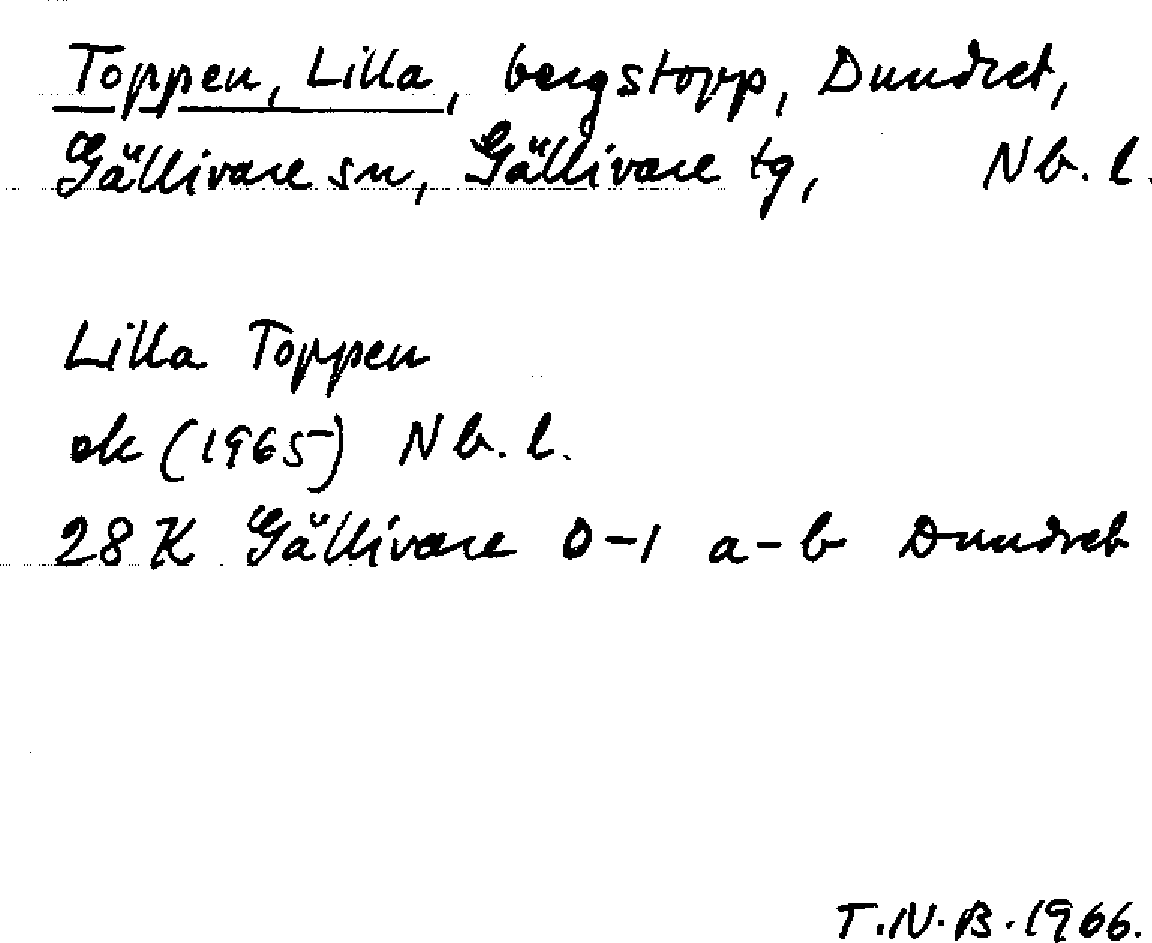 Toppen, Lilla, bergstopp, Dundret,
Gällivare sn, Gällivare tg, Nb. l.
Lilla Toppen
ek (1965) Nb. l.
28 K Gällivare 0-1 a-b Dundret
T.N.B. 1966.